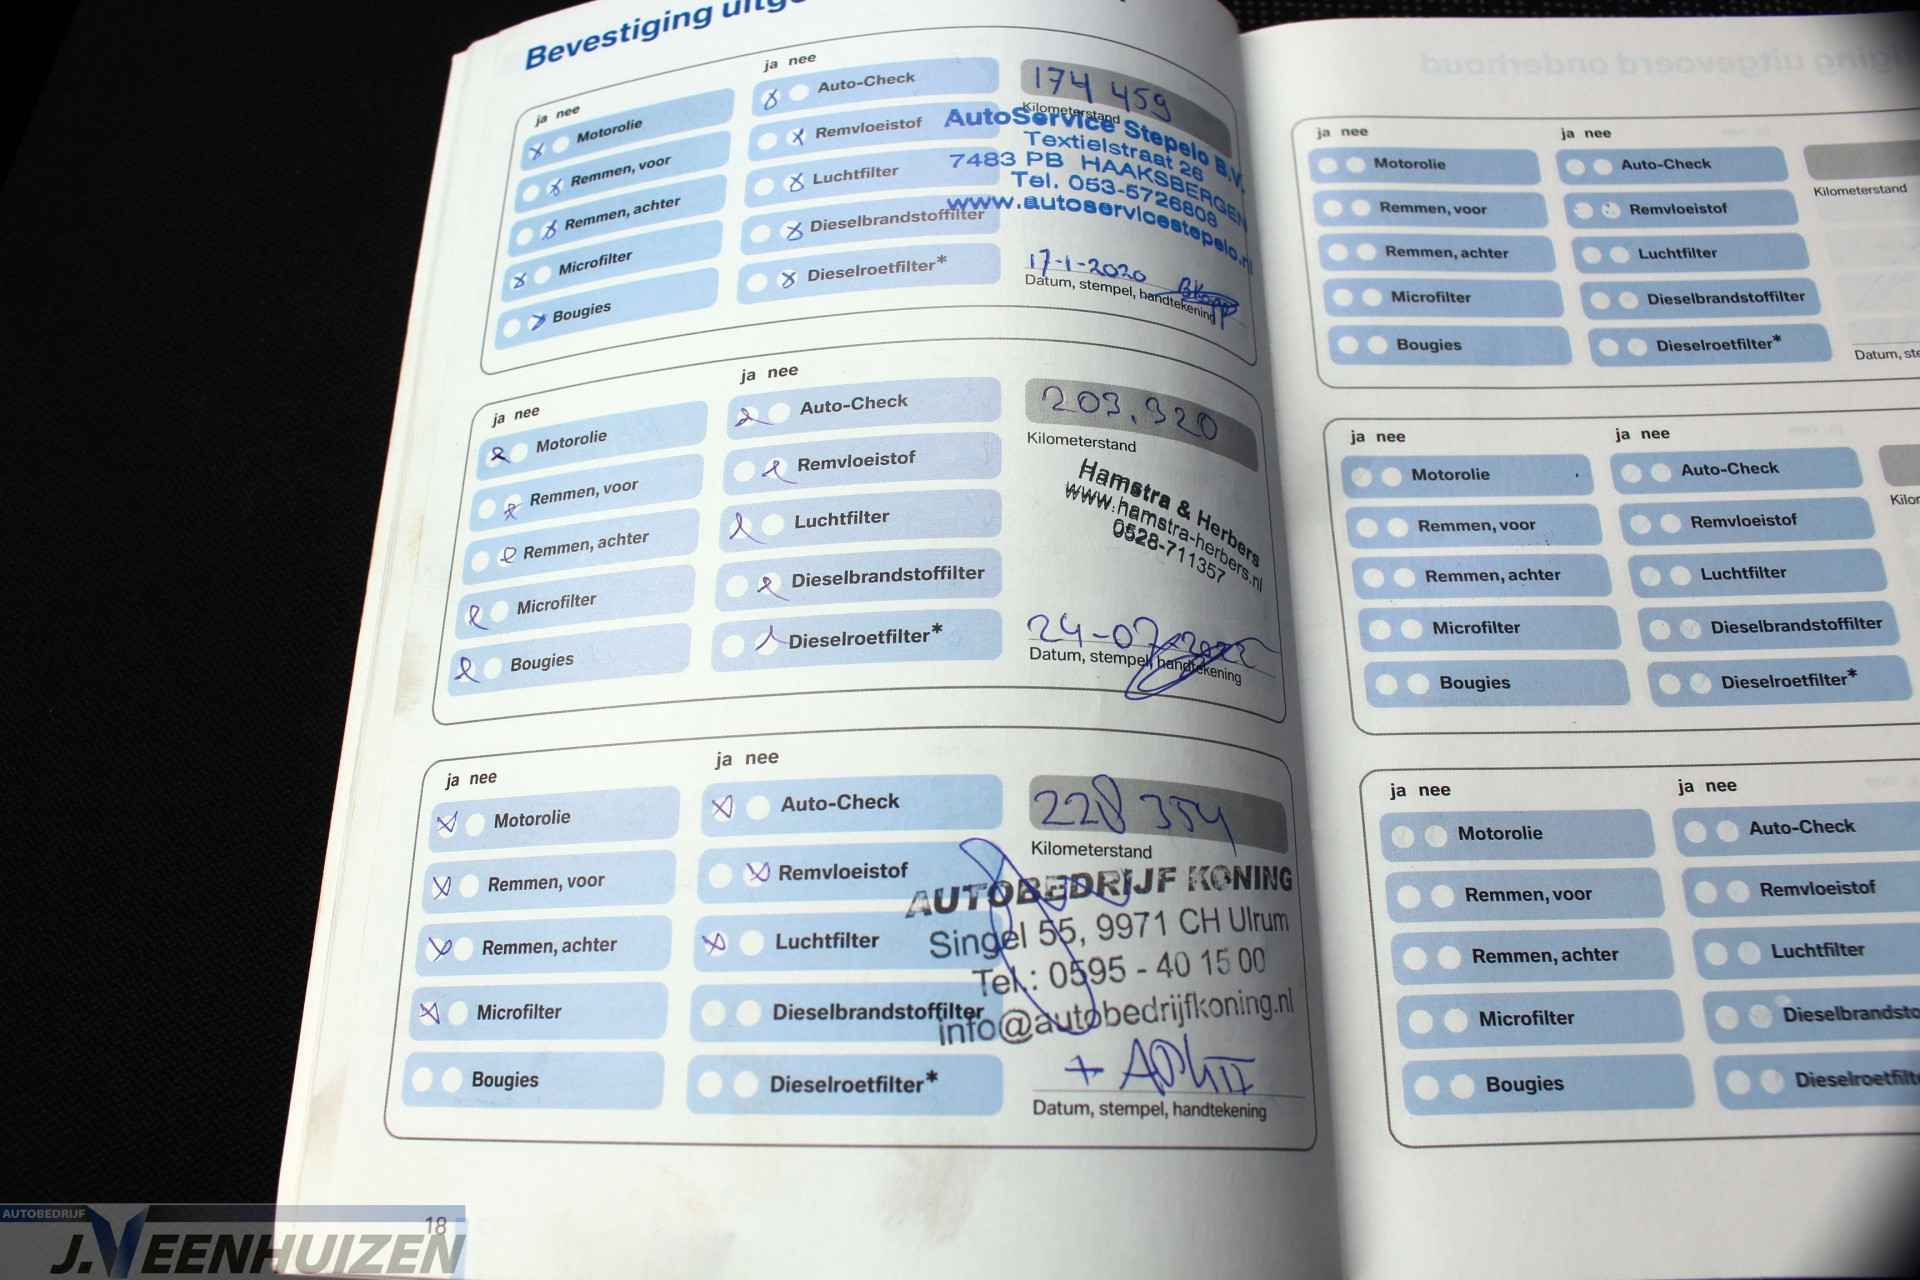 Bevestiging
ja nee
Motorolie
Remmen, voor
Remmen, achter
Microfilter
Bougies
ja nee
Auto-Check
Remvloeistof
Luchtfilter
Dieselbrandstoffilter
Dieselroetfilter*
174 459
Kilometerstand
AutoService Stepelo B.V.
Textielstraat 26
7483 PB HAAKSBERGEN
Tel. 053-5726808
www.autoservicestepelo.nl
17-1-2020
Datum, stempel, handtekening
ja nee
Motorolie
Remmen, voor
Remmen, achter
Microfilter
Bougies
ja nee
Auto-Check
Remvloeistof
Luchtfilter
Dieselbrandstoffilter
Dieselroetfilter*
203.320
Kilometerstand
Hamstra & Herbers
www.hamstra-herbers.nl
0528-711357
24-07-2022
Datum, stempel, handtekening
ja nee
Motorolie
Remmen, voor
Remmen, achter
Microfilter
Bougies
ja nee
Auto-Check
Remvloeistof
Luchtfilter
Dieselbrandstoffilter
Dieselroetfilter*
228 354
Kilometerstand
AUTOBEDRIJF KONING
Singel 55, 9971 CH Ulrum
Tel.: 0595 - 40 15 00
info@autobedrijfkoning.nl
Datum, stempel, handtekening
18
ja nee
Motorolie
Remmen, voor
Remmen, achter
Microfilter
Bougies
ja nee
Auto-Check
Remvloeistof
Luchtfilter
Dieselbrandstoffilter
Dieselroetfilter*
Kilometerstand
Datum, ste
ja nee
Motorolie
Remmen, voor
Remmen, achter
Microfilter
Bougies
ja nee
Auto-Check
Remvloeistof
Luchtfilter
Dieselbrandstoffilter
Dieselroetfilter*
Kilor
ja nee
Motorolie
Remmen, voor
Remmen, achter
Microfilter
Bougies
ja nee
Auto-Check
Remvloeistof
Luchtfilter
Dieselbrandsto
Dieselroetfilt
AUTOBEDRIJF
J.VEENHUIZEN